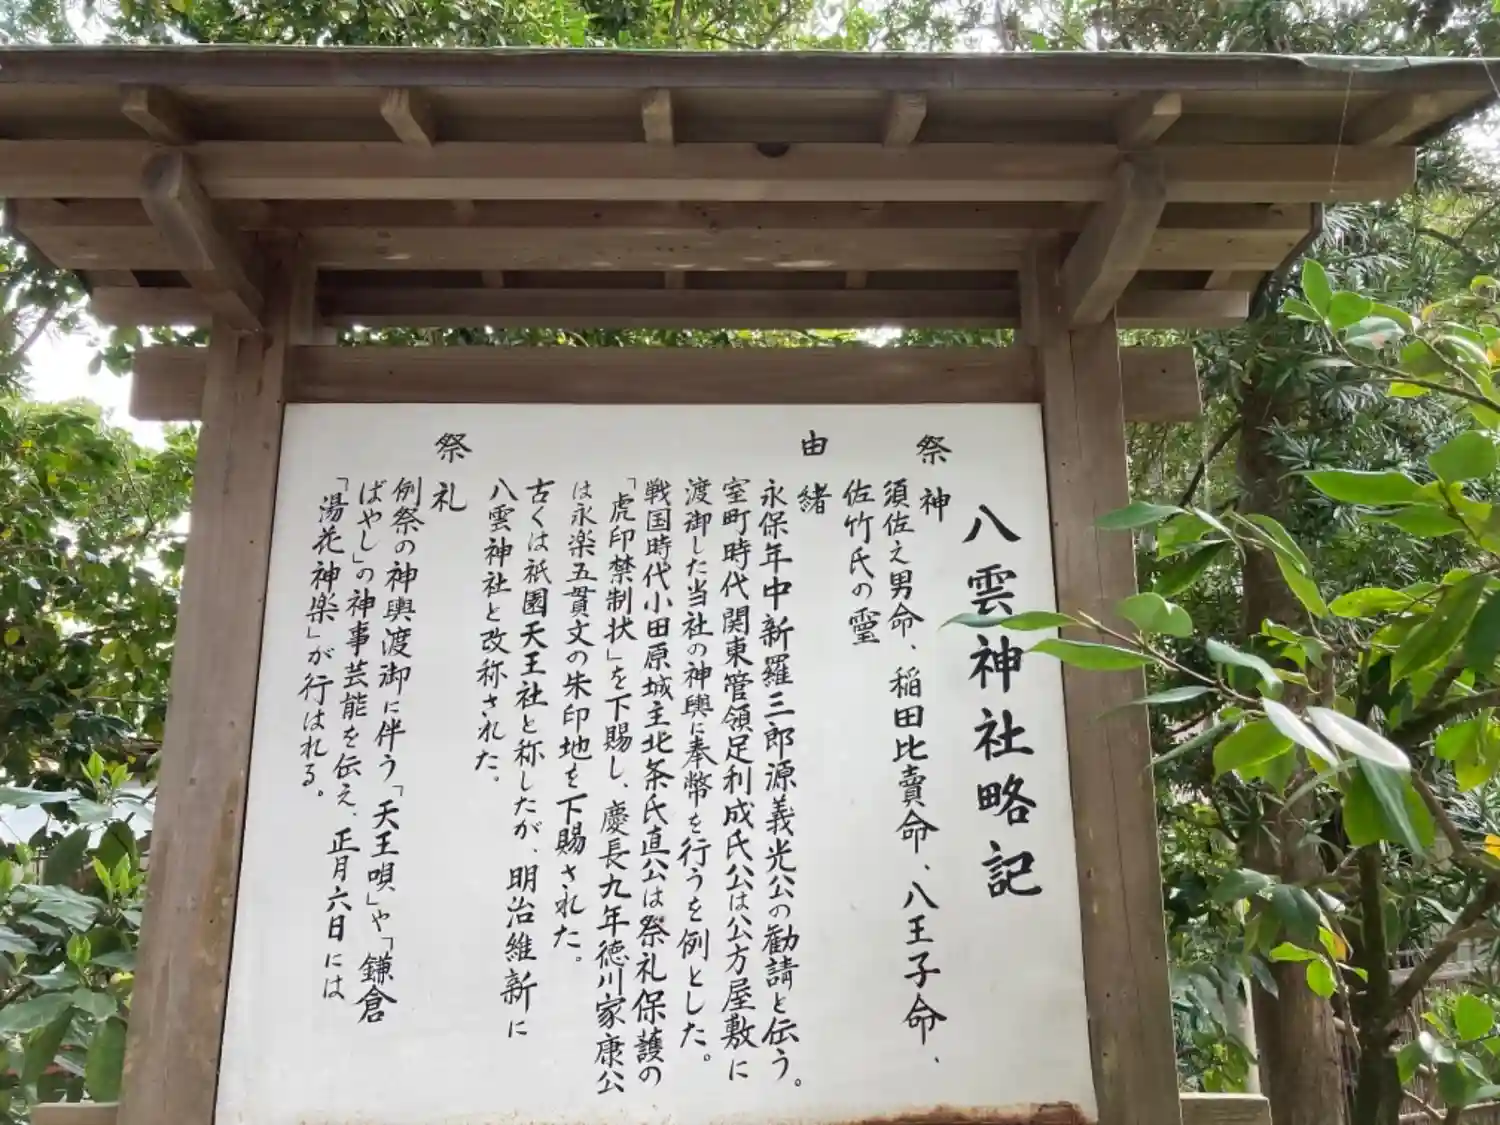 八雲神社略記
祭神
須佐之男命、稲田比売命、八王子命、
佐竹氏の霊
由緒
永保年中新羅三郎源義光公の勧請と伝う。
室町時代関東管領足利成氏公は公方屋敷に
渡御した当社の神輿に奉幣を行うを例とした。
戦国時代小田原城主北条氏直公は祭礼保護の
「虎印禁制状」を下賜し、慶長九年徳川家康公
は永楽五貫文の朱印地を下賜された。
古くは祇園天王社と称したが、明治維新に
八雲神社と改称された。
祭礼
例祭の神輿渡御に伴う「天王唄」や「鎌倉
ばやし」の神事芸能を伝え、正月六日には
「湯花神楽」が行はれる。